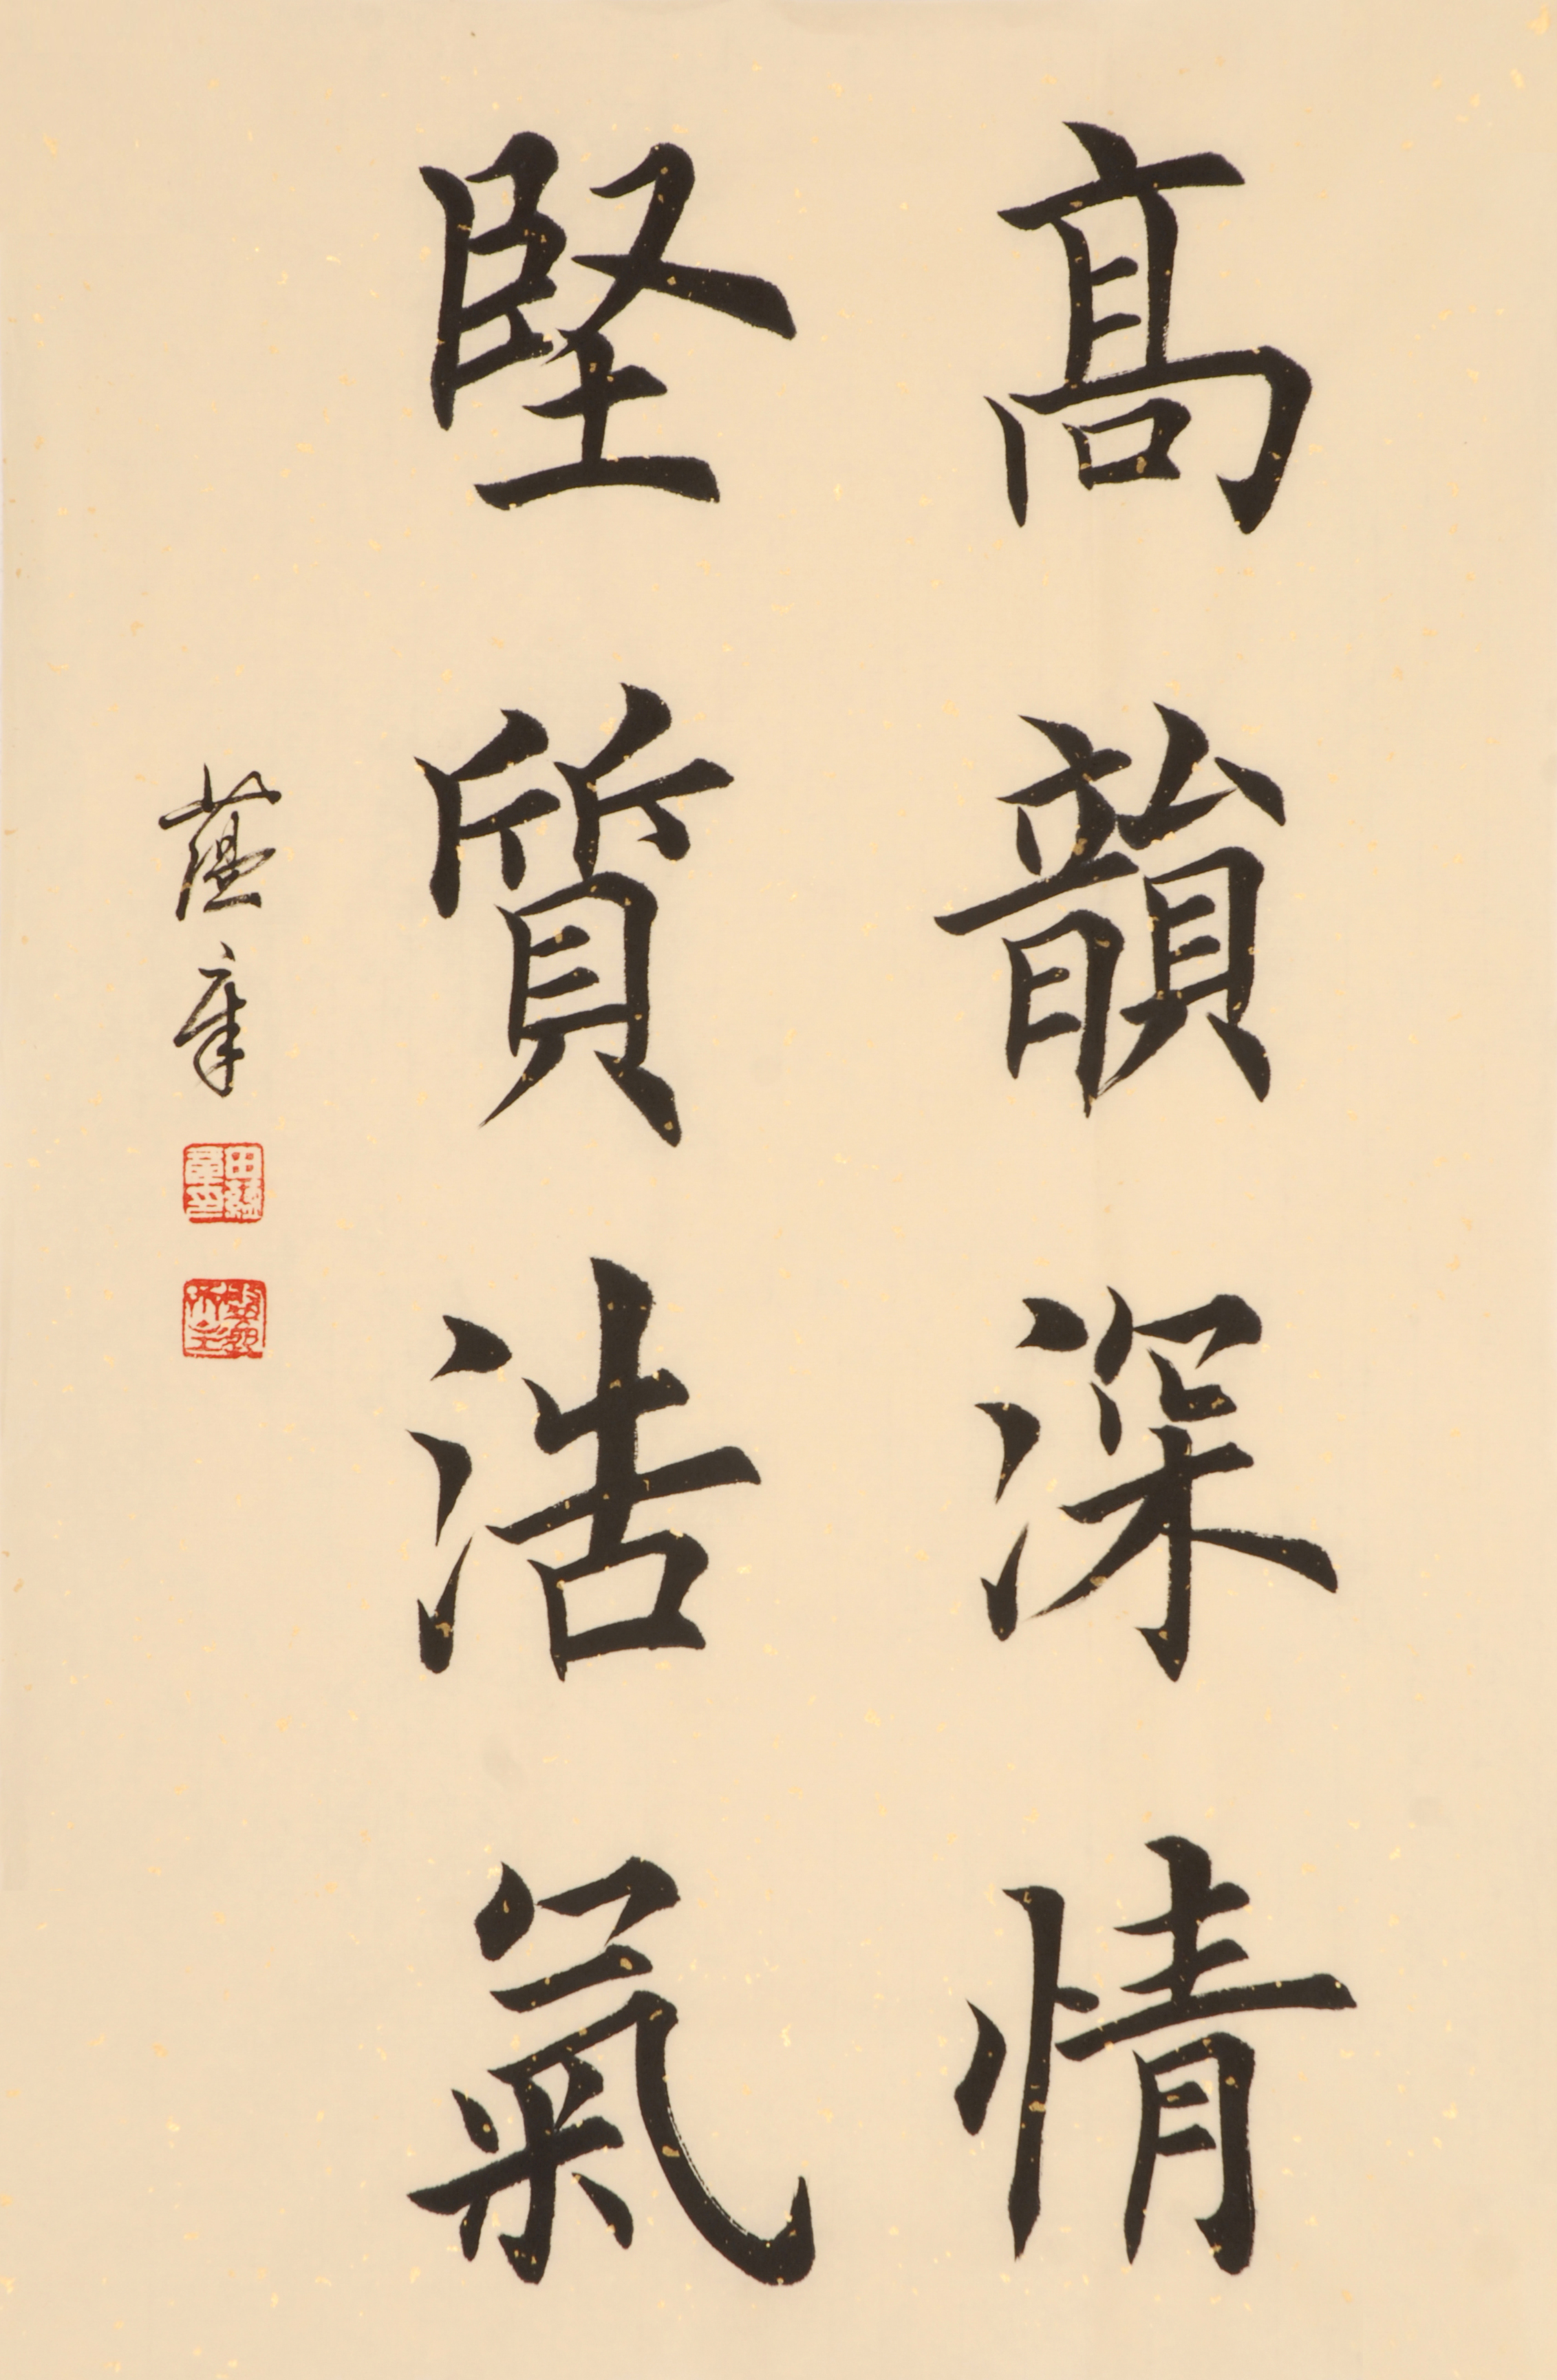 高韻深情
堅質浩氣
蘊章